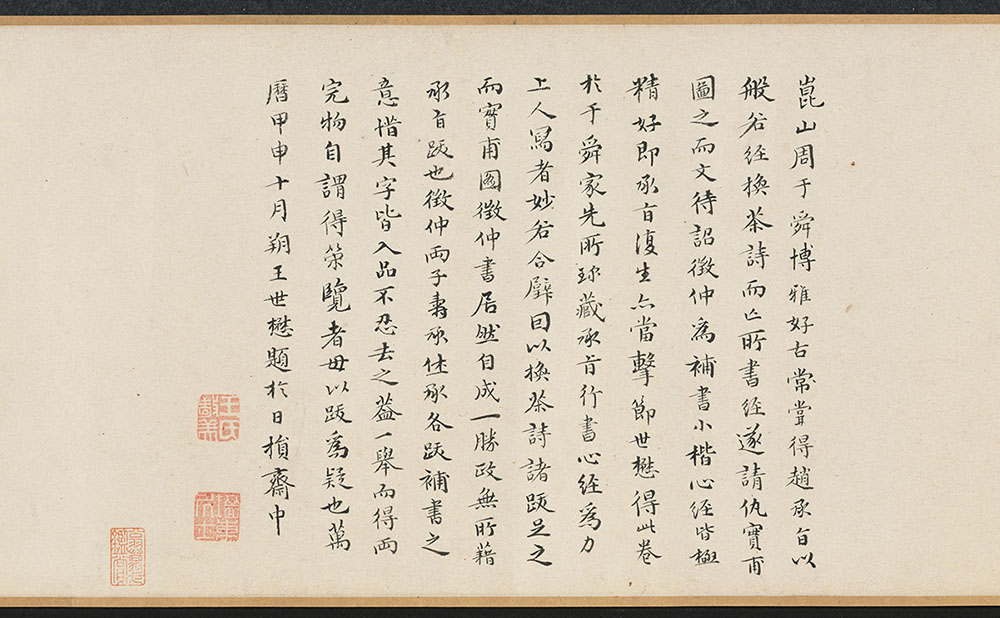 崑山周于舜博雅好古常甞得趙承旨以
般若經換茶詩而亡所書經遂請仇實甫
圖之而文待詔徵仲為補書小楷心經皆極
精好即承旨復生亦當擊節世懋得此卷
於于舜家先所珎藏承旨行書心經為力
上人寫者妙若合璧因以換茶詩諸跋足之
而實甫圖徵仲書居然自成一勝政無所藉
承旨跋也徵仲兩子壽承休承各跋補書之
意惜其字皆入品不忍去之葢一舉而得兩
完物自謂得策覽者毋以跋為疑也萬
曆甲申十月朔王世懋題於日損齋中
王氏敬美